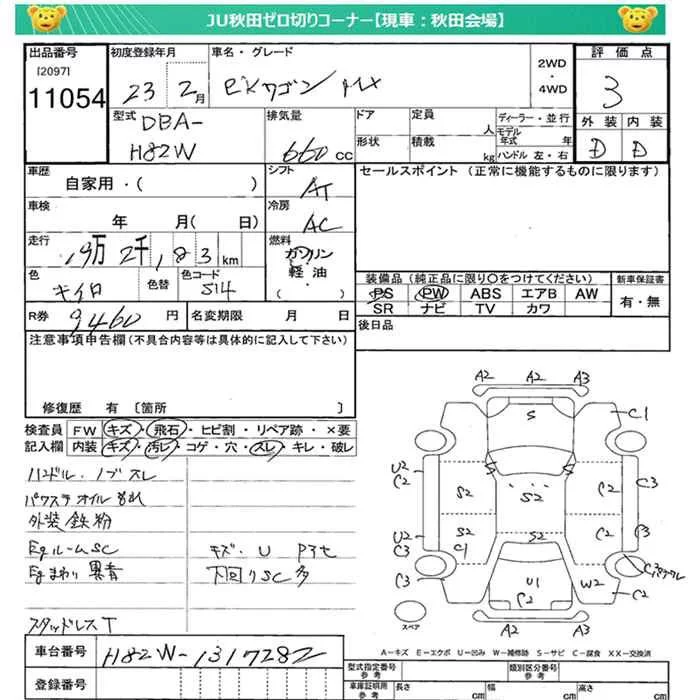 JU秋田ゼロ切りコーナー【現車：秋田会場】
出品番号
[2097]
11054
初度登録年月
23 2月
車名・グレード
EKワゴン MX
2WD
・
4WD
評価点
3
外装 内装
D D
型式
DBA-
H82W
排気量
660cc
ドア
定員
人
ディーラー・並行
モデル
年式 年
形状
積載
kg
ハンドル 左・右
車歴
自家用・( )
シフト
AT
セールスポイント (正常に機能するものに限ります)
車検
年 月( 日)
冷房
AC
走行
19万 2千183km
燃料
ガソリン
軽油
( )
色
キイロ
色替
色コード
S14
装備品 (純正品に限り〇をつけてください)
PS PW ABS エアB AW
SR ナビ TV カワ
新車保証書
有・無
R券 9460 円
名変期限 月 日
後日品
注意事項申告欄 (不具合内容等は具体的に記入して下さい)
修復歴 有〔箇所 〕
検査員
記入欄
FW キズ・飛石・ヒビ割・リペア跡・×要
内装 キズ・汚レ・コゲ・穴・スレ・キレ・破レ
ハンドル・ノブスレ
パワステオイルもれ
外装鉄粉
EgルームSC
Egまわり異音
スタッドレスT
キズ・U
下回りSC多
A2 A2 A3
S
C1
S S
U2
C2
S2
S2
C2
C3
U2
C3
S2
C1
S2
C2
C3
C3
U1
C2
W2
C2
A2 A3
スペア
A−キズ E−エクボ U−凹み W−補修跡 S−サビ C−腐食 XX−交換済
車台番号
H82W-1317282
登録番号
型式指定番号
参考
類別区分番号
参考
車庫証明用
参考
長さ
cm
幅
cm
高さ
cm